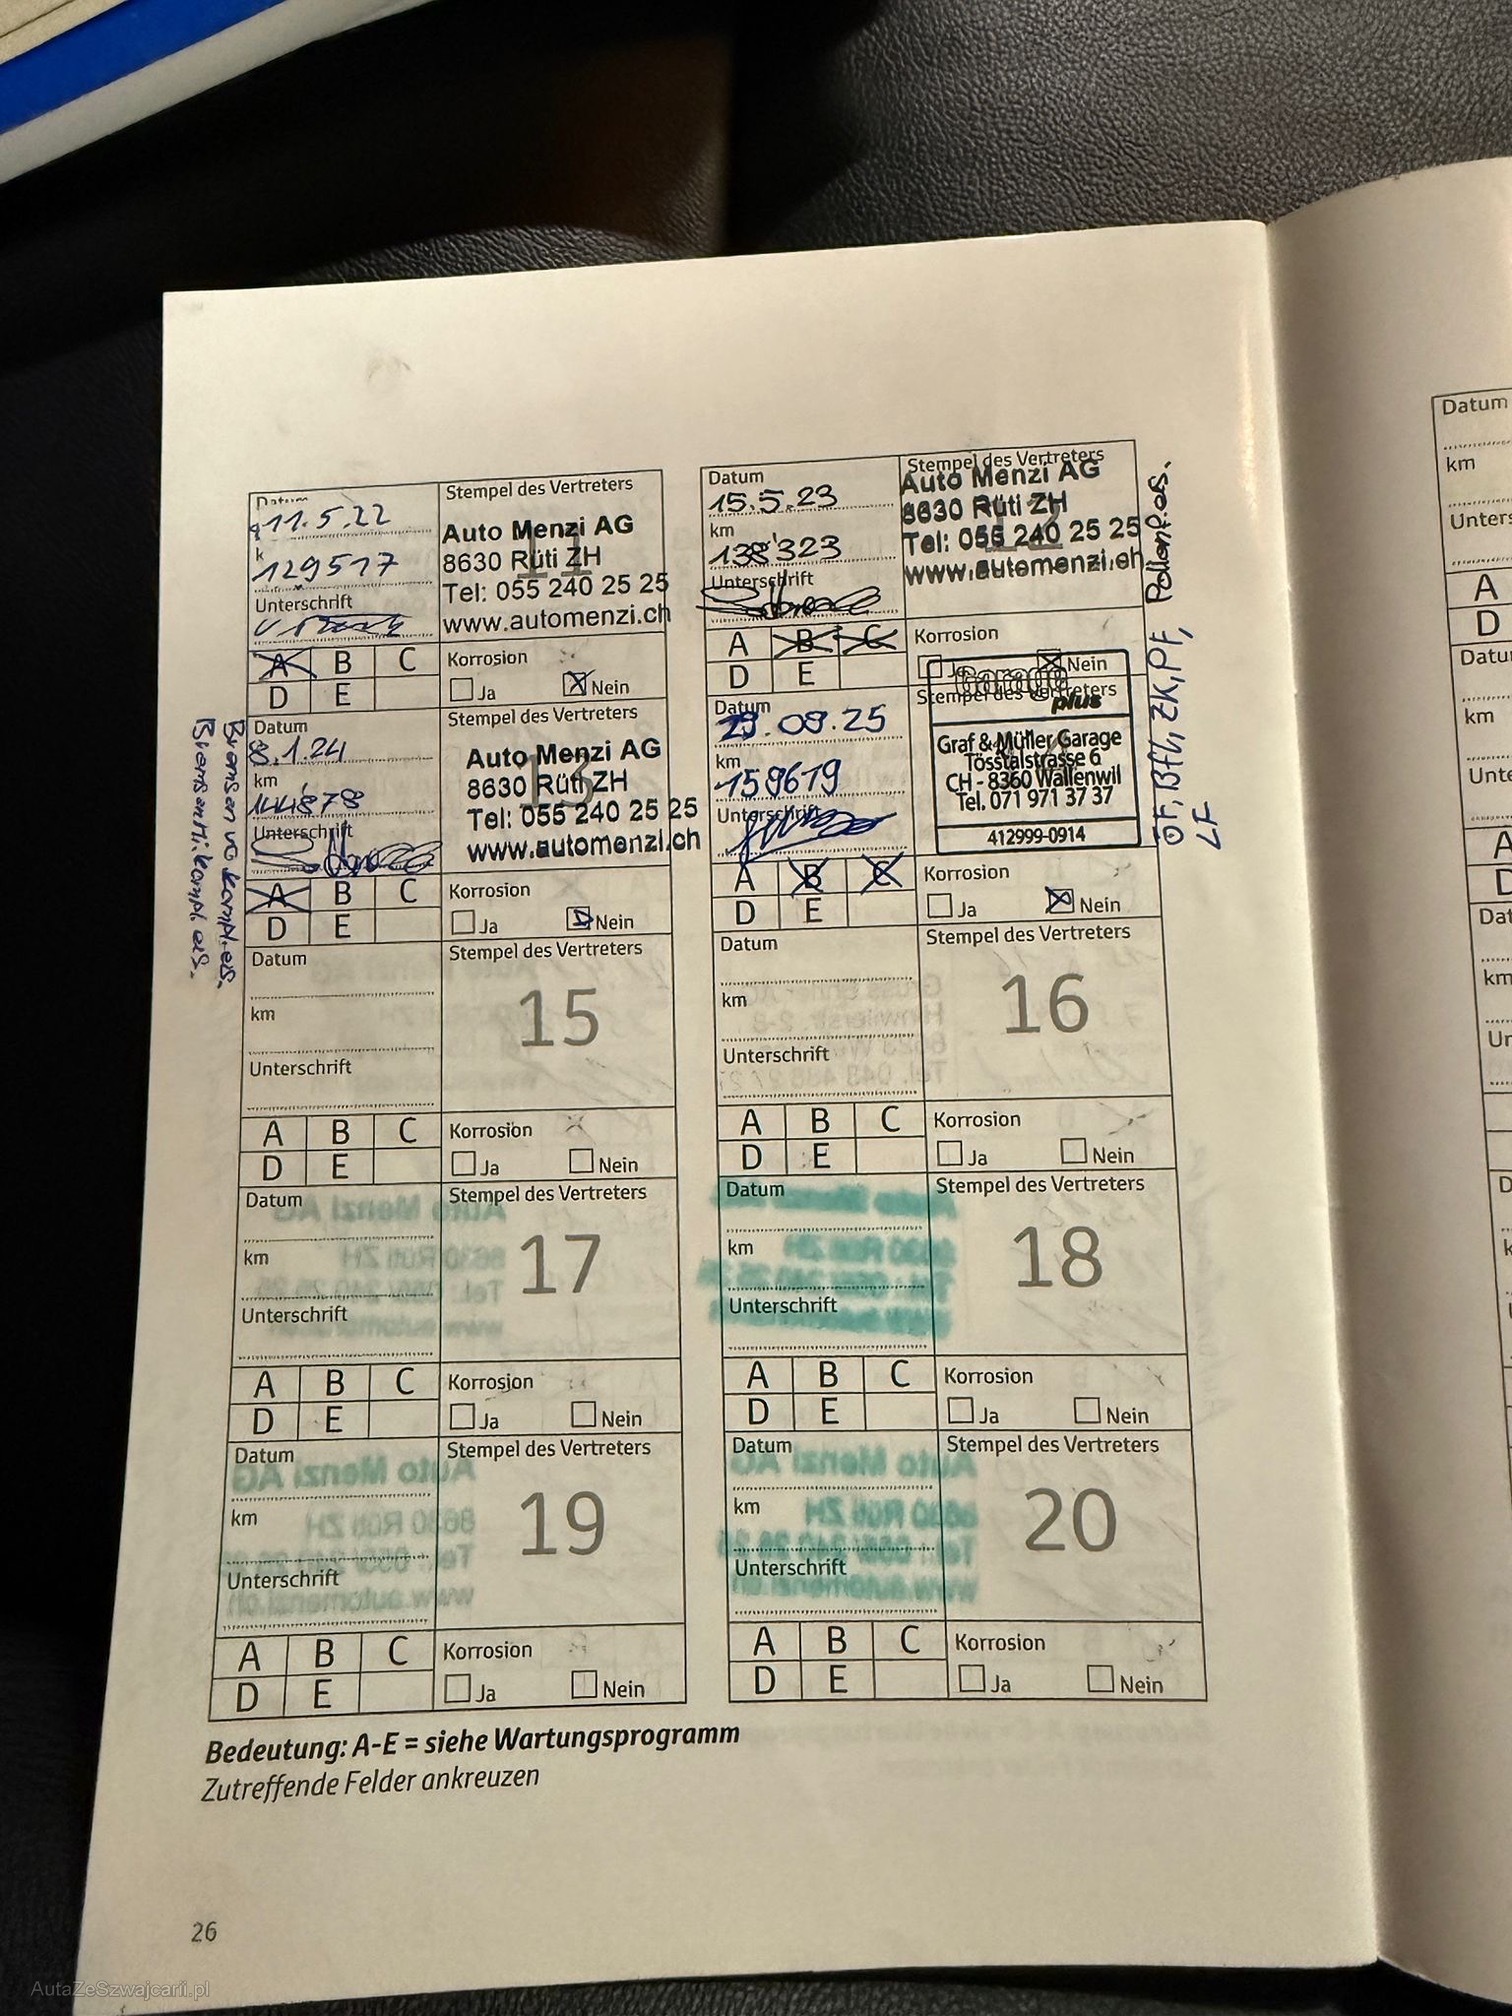 Datum
11.5.22
k
129517
Unterschrift
Stempel des Vertreters
11
Auto Menzi AG
8630 Rüti ZH
Tel: 055 240 25 25
www.automenzi.ch
A B C
D E
Korrosion
Ja Nein
Datum
15.5.23
km
138'323
Unterschrift
Stempel des Vertreters
Auto Menzi AG
8630 Rüti ZH
Tel: 055 240 25 25
www.automenzi.ch
A B C
D E
Korrosion
Ja Nein
Pollenf. es.
Datum
8.1.24
km
144'878
Unterschrift
Stempel des Vertreters
13
Auto Menzi AG
8630 Rüti ZH
Tel: 055 240 25 25
www.automenzi.ch
A B C
D E
Korrosion
Ja Nein
Bremsen vo kompl. es.
Bremsen Hi. kompl. es.
Datum
29.08.25
km
159619
Unterschrift
Stempel des Vertreters
Garage
plus
Graf & Müller Garage
Tösstalstrasse 6
CH - 8360 Wallenwil
Tel. 071 971 37 37
412999-0914
A B C
D E
Korrosion
Ja Nein
ÖF, Bfl, ZK, PF,
LF
Datum
km
Unterschrift
Stempel des Vertreters
15
A B C
D E
Korrosion
Ja Nein
Datum
km
Unterschrift
Stempel des Vertreters
16
A B C
D E
Korrosion
Ja Nein
Datum
km
Unterschrift
Stempel des Vertreters
17
A B C
D E
Korrosion
Ja Nein
Datum
km
Unterschrift
Stempel des Vertreters
18
A B C
D E
Korrosion
Ja Nein
Datum
km
Unterschrift
Stempel des Vertreters
19
A B C
D E
Korrosion
Ja Nein
Datum
km
Unterschrift
Stempel des Vertreters
20
A B C
D E
Korrosion
Ja Nein
Bedeutung: A-E = siehe Wartungsprogramm
Zutreffende Felder ankreuzen
26
Datum
km
Unters
A
D
Datu
km
Unte
A
D
Dat
km
Un
AutaZeSzwajcarii.pl